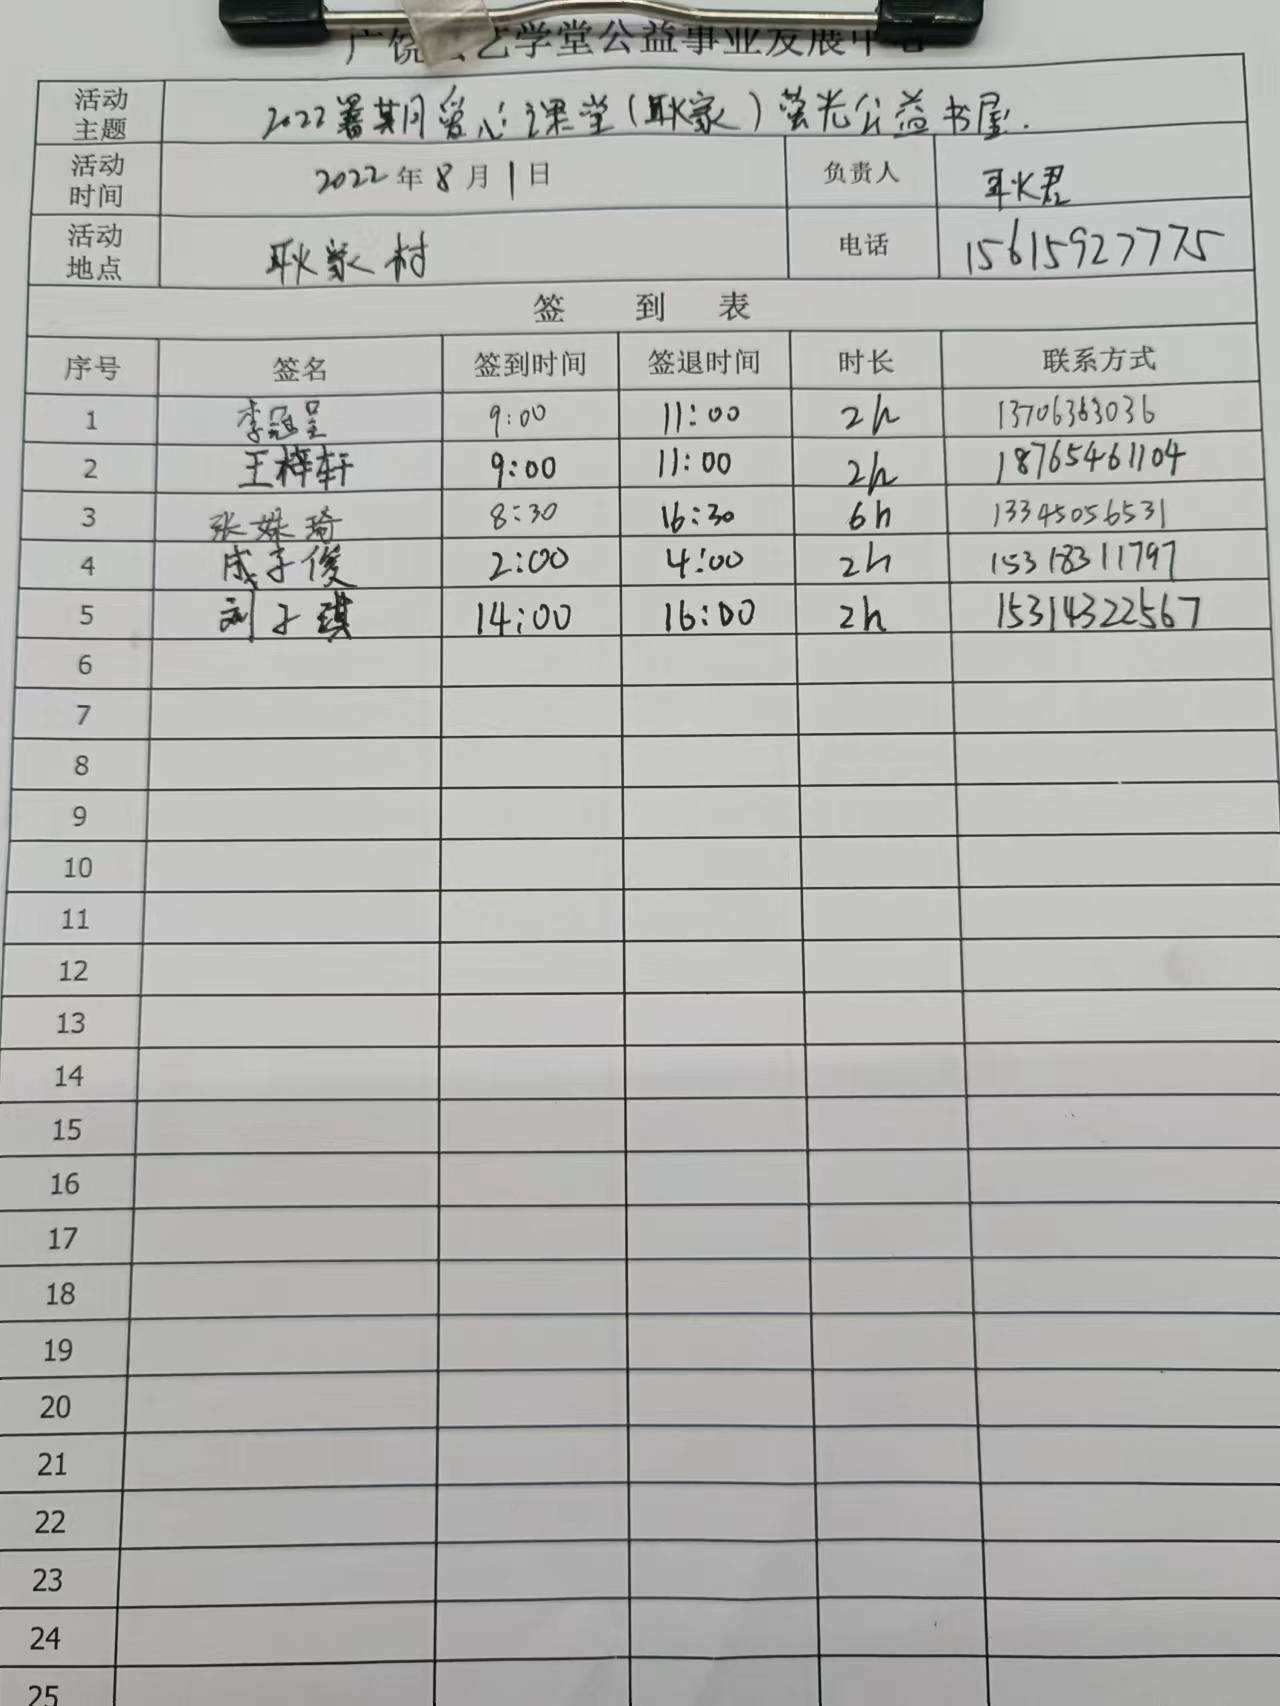 广饶 艺学堂公益事业发展中心
活动主题 2022暑期间爱心课堂(耿家)萤光公益书屋.
活动时间 2022年8月1日 负责人 耿君
活动地点 耿家村 电话 15615927775
签 到 表
序号 签名 签到时间 签退时间 时长 联系方式
1 李冠呈 9:00 11:00 2h 13706363036
2 王梓轩 9:00 11:00 2h 18765461104
3 张姝琦 8:30 16:30 6h 13345056531
4 成子俊 2:00 4:00 2h 15318311797
5 刘子琪 14:00 16:00 2h 15314322567
6
7
8
9
10
11
12
13
14
15
16
17
18
19
20
21
22
23
24
25